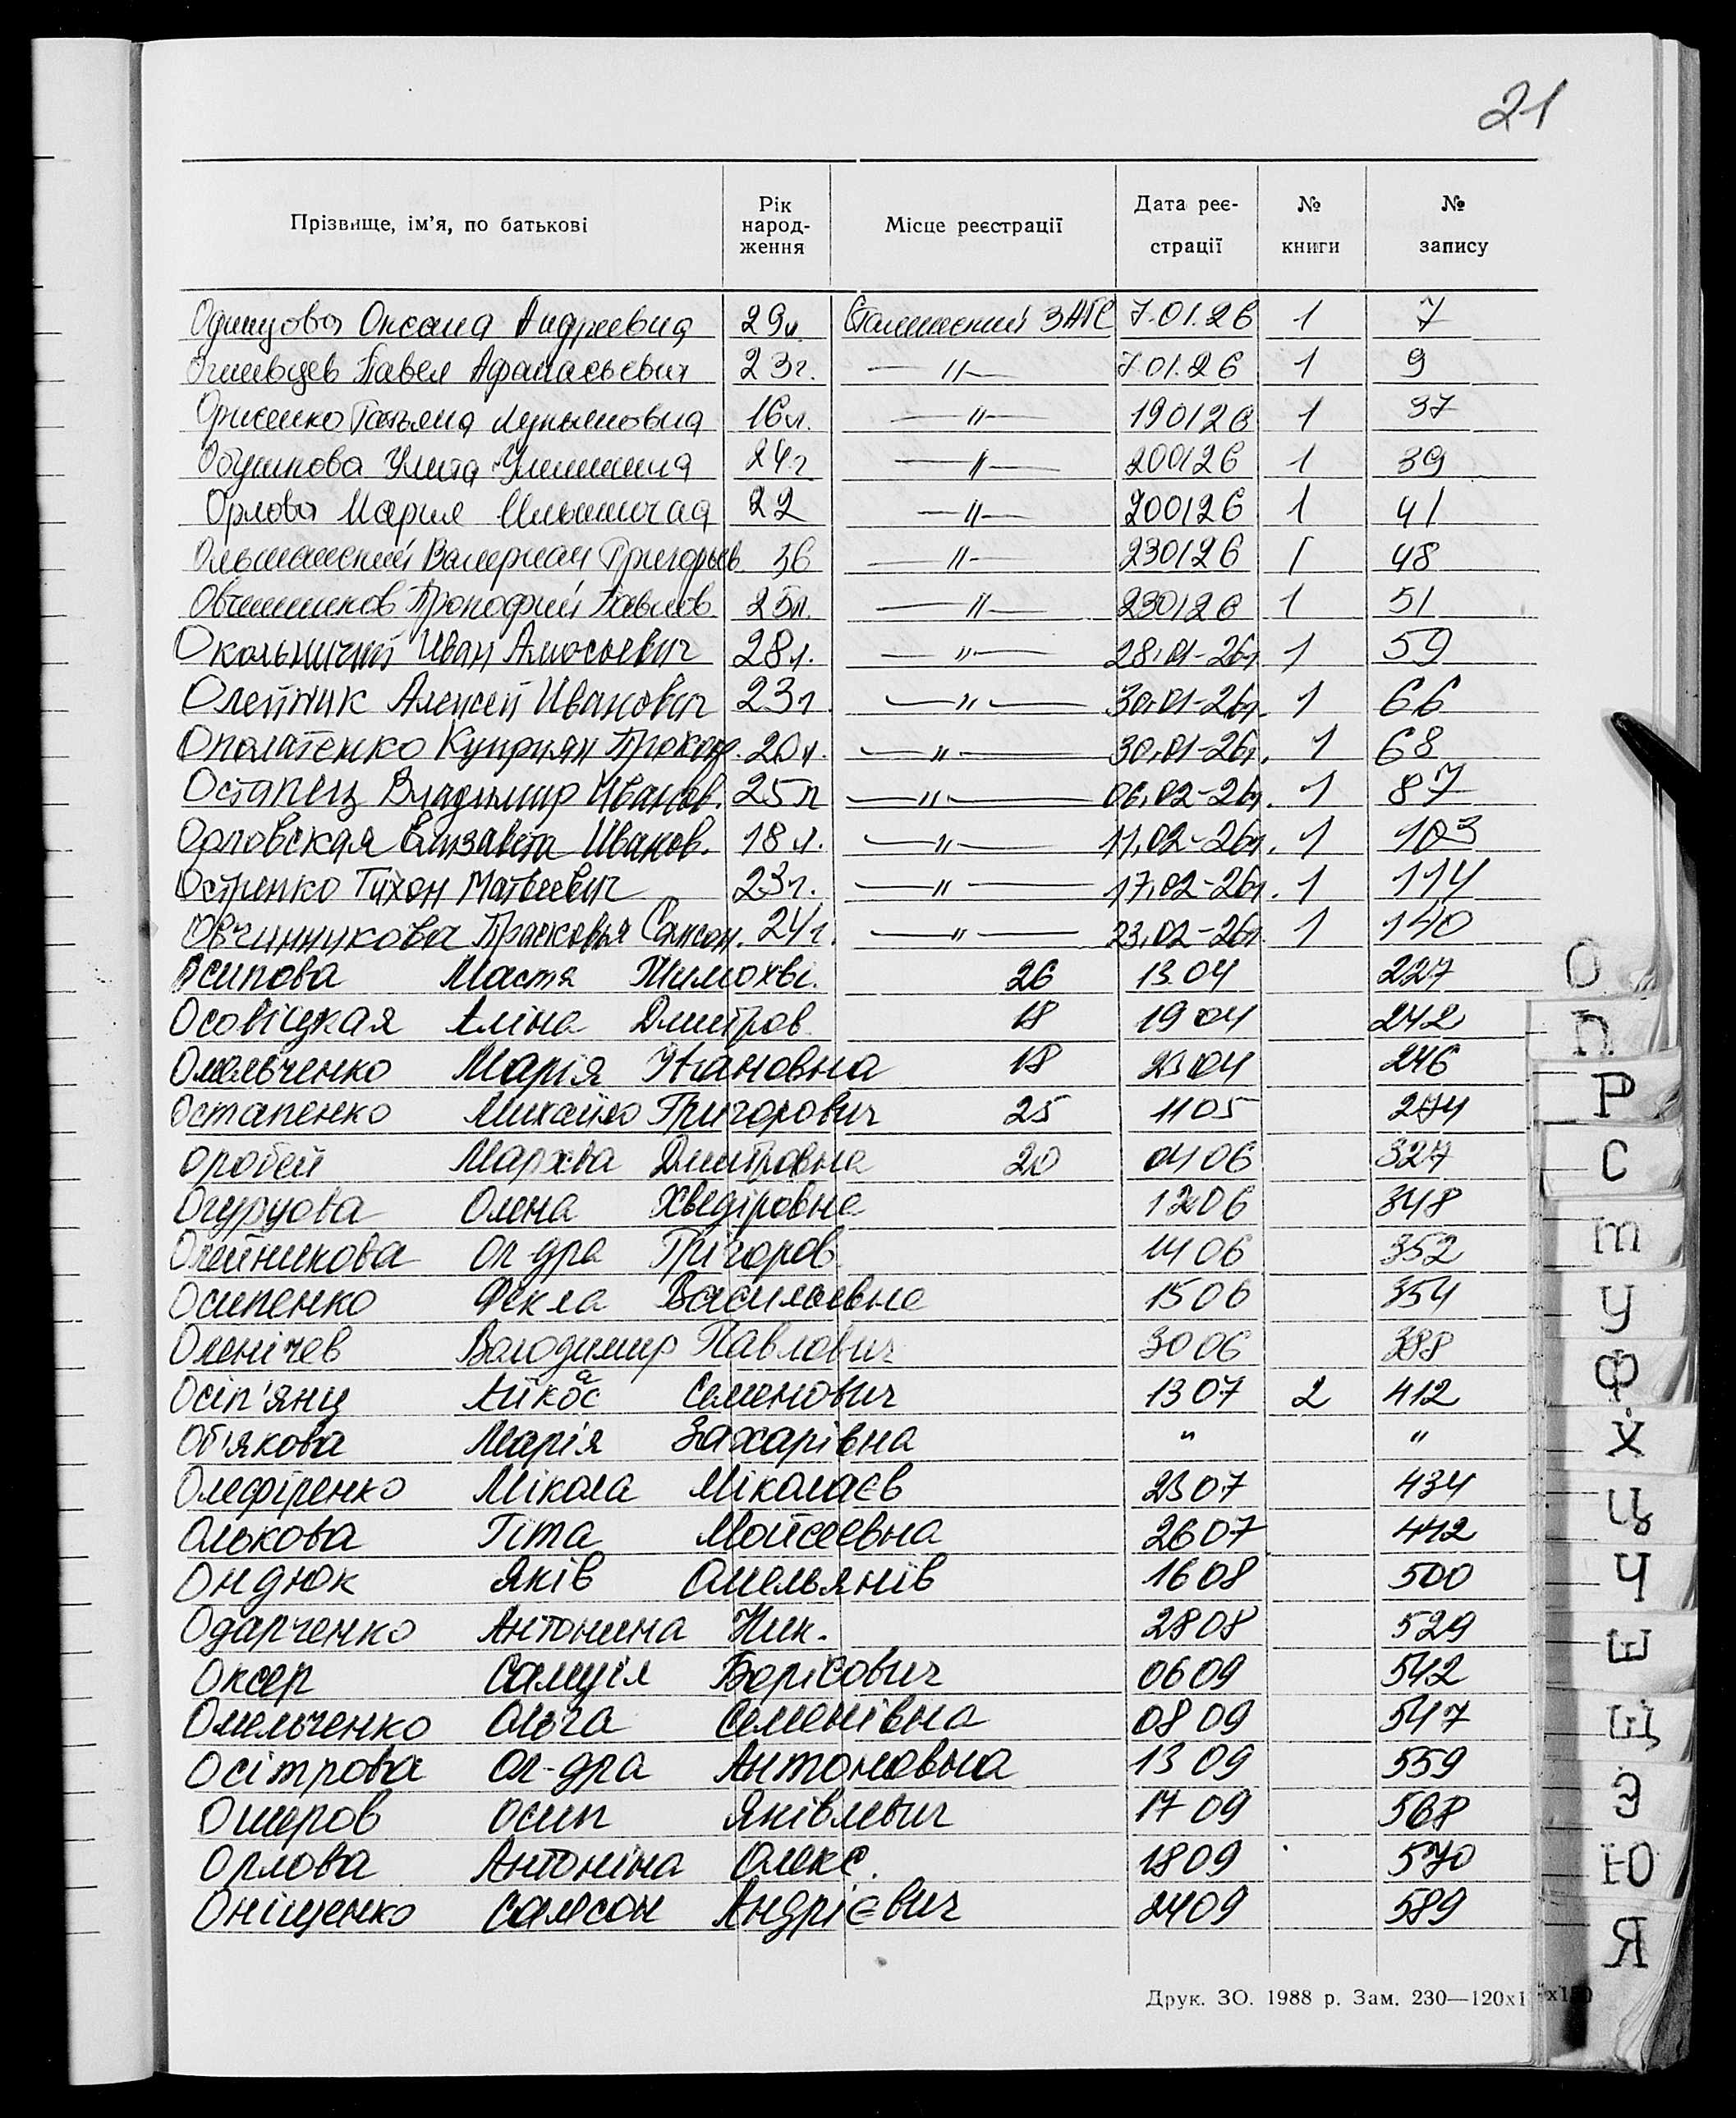 21
Прізвище, ім'я, по батькові Рік народ-ження Місце реєстрації Дата реє-страції № книги № запису
Одинцова Оксана Андреевна 29л. Сталинский ЗАГС 7.01.26 1 7
Павел Афанасьевич 23г. —〃— 7.01.26 1 9
Татьяна Лукьяновна 16л. —〃— 190126 1 37
Улита 24г —〃— 200126 1 39
Орлова Мария 22 —〃— 200126 1 41
Ольшанский Валериан Григорьев. 36 —〃— 230126 1 48
Овчинников Прокофий Павлов. 25л. —〃— 230126 1 51
Окольничий Иван Амосьевич 28л. —〃— 28.01-26г. 1 59
Олейник Алексей Иванович 23г —〃— 30.01-26г. 1 66
Ополатенко Куприян Прокоф. 20л. —〃— 30.01-26г. 1 68
Остапец Владимир Иванов. 25л —〃— 06.02-26г. 1 87
Орловская Елизавета Иванов. 18л. —〃— 11.02-26г. 1 103
Остренко Тихон Матвеевич 23г. —〃— 17.02-26г. 1 114
Овчинникова Прасковья Самсон. 24г. —〃— 23.02-26г. 1 140
Осипова Настя Тимохві. 26 1304 227
Осовіцкая Аліна Дмитров. 18 1904 242
Омельченко Марія Івановна 18 2304 246
Остапенко Михайло Григорович 25 1105 274
Оробей Мархва Дмитровна 20 0406 327
Огурцова Олена Хведіровна 1206 348
Олейникова Ол-дра Грігоров. 1406 352
Осипенко Фекла Васильевна 1506 354
Оленічев Володимир Павлович 3006 388
Осіп'янц Айкас Семенович 1307 2 412
Об'якова Марія Захарівна 〃 〃
Олефіренко Мікола Міколаєв 2307 434
Олькова Гіта Мойсеевна 2607 442
Ондюк Яків Омельянів 1608 500
Одарченко Антонина Ник. 2808 529
Оксер Самуіл Борісович 0609 542
Омельченко Ольга Семенівна 0809 547
Осітрова Ол-дра Антоновна 1309 559
Ошеров Осип Яківлевич 1709 568
Орлова Антоніна Олекс. 1809 570
Оніщенко Самсон Андрієвич 2409 589
О
П
Р
С
т
У
Ф
Х
Ц
Ч
Ш
Щ
Э
Ю
Я
Друк. ЗО. 1988 р. Зам. 230—120х1